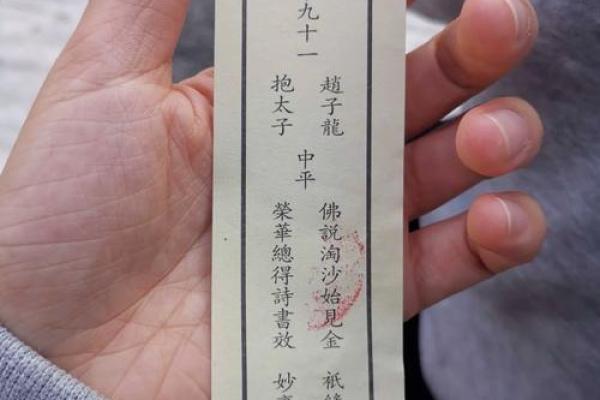 九十一
趙子龍
抱太子
中平
佛説淘沙始見金 祇
榮華總得詩書效 妙